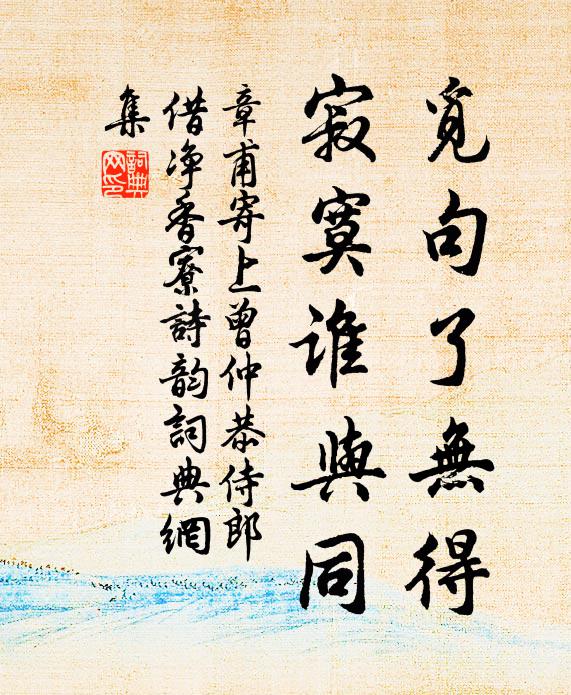 覓句了無得
寂寞誰與同
章甫寄上曾仲恭侍郎
借净香寮詩韵詞典網
集
詞典
网印